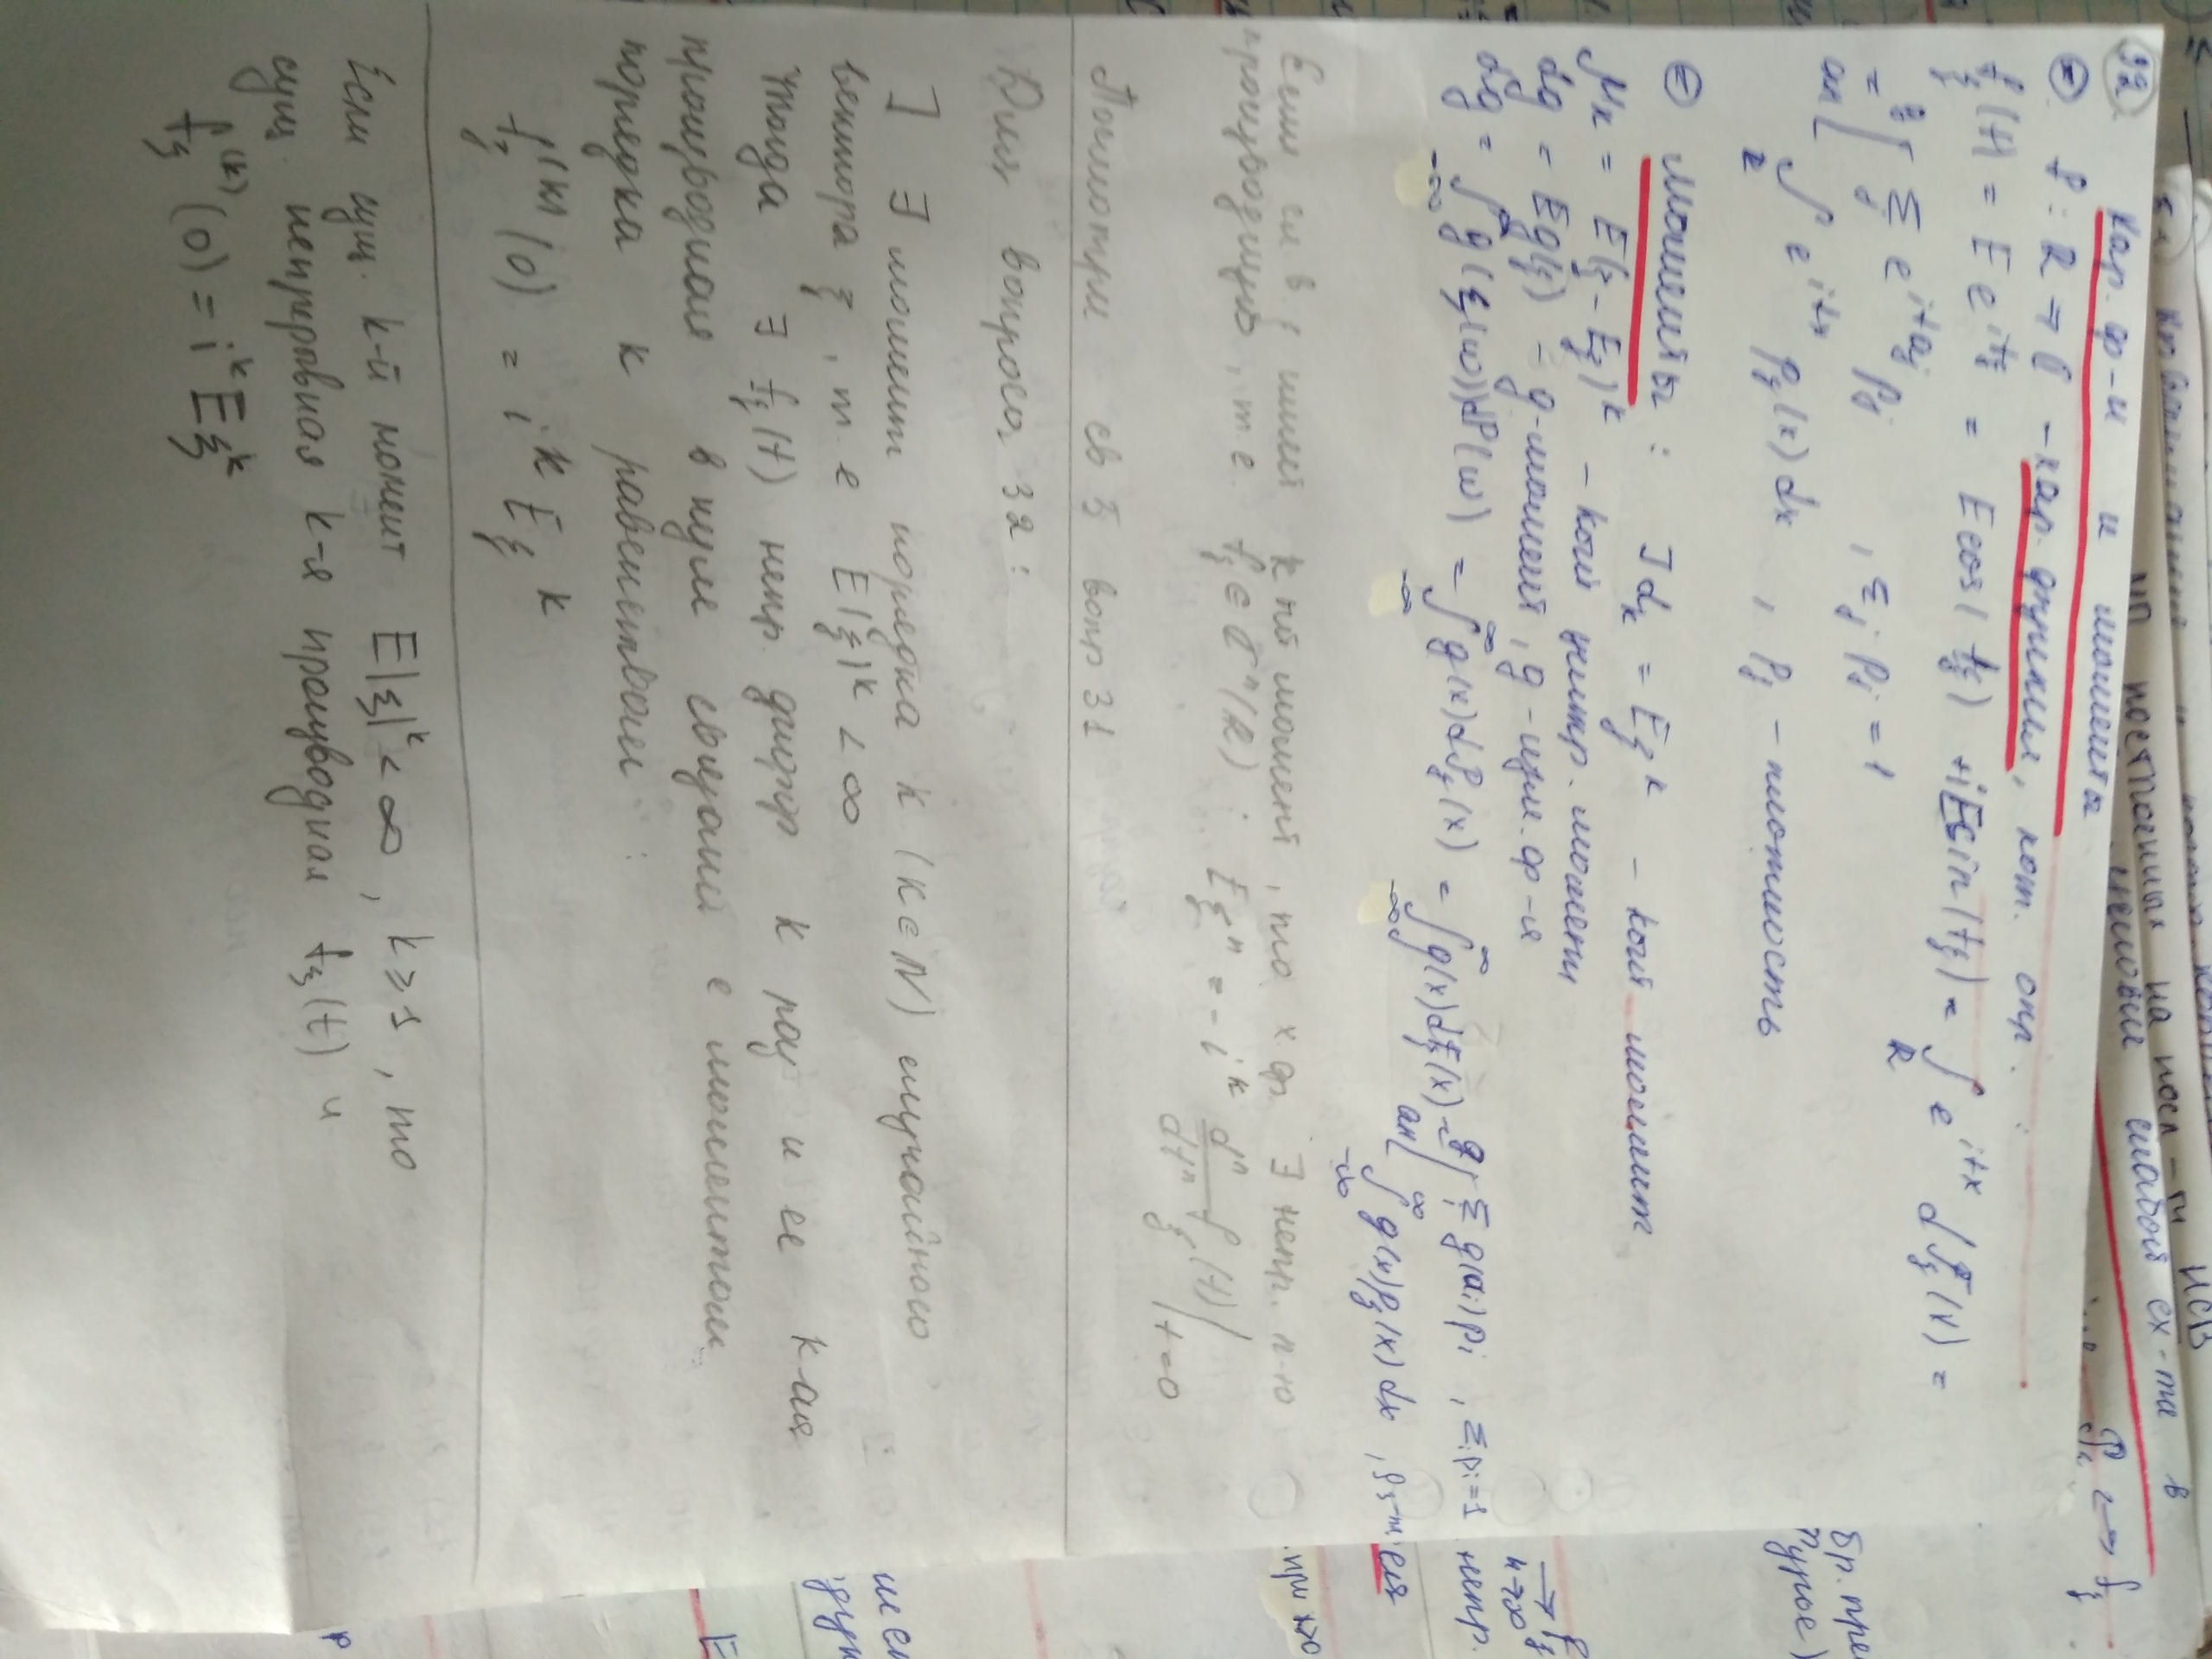 МП построенных на посл-ти НСВ
условие слабой сх-ти в
32. Хар. ф-и и моменты
f : R → C – хар. функция, кот. опр. :
f_ξ(t) = E e^{itξ} = E cos(tξ) + iE sin(tξ) = ∫_R e^{itx} dP_ξ(x) =
= [ Σ_j e^{ita_j} p_j , Σ_j p_j = 1
∫_R e^{itx} p_ξ(x) dx , p_ξ – плотность
Моменты : ] α_k = Eξ^k – кый момент
μ_k = E(ξ – Eξ)^k – кый центр. момент
α_g = Eg(ξ) – g-момент, g – изм. ф-я
α_g = ∫_{-∞}^{∞} g(ξ(ω))dP(ω) = ∫_{-∞}^{∞} g(x)dP_ξ(x) = ∫_{-∞}^{∞} g(x)dF_ξ(x) = [ Σ_i g(a_i) p_i , Σ_i p_i = 1
∫_{-∞}^{∞} g(x) p_ξ(x) dx
Если сл в ξ имеет k-ый момент, то х ф. ∃ непр. n-ю
производную, т.е. f_ξ ∈ C^n(R) : Eξ^n = - i^k d^n/dt^n f_ξ(t)|_{t=0}
Посмотри св 5 вопр 31
Для вопроса 32 :
] ∃ момент порядка k (k∈N) случайного
вектора ξ, т.е E|ξ|^k < ∞
Тогда ∃ f_ξ(t) непр. дифф k раз и ее k-ая
производная в нуле связана с моментом
порядка k равенством :
f_ξ^{(k)}(0) = i^k Eξ^k
Если сущ. k-й момент E|ξ|^k < ∞, k ≥ 1, то
сущ. непрерывная k-я производная f_ξ(t) и
f_ξ^{(k)}(0) = i^k Eξ^k
↔ f_ξ
бр. пре
Фурье)
→ f_ξ
n→∞
непр.